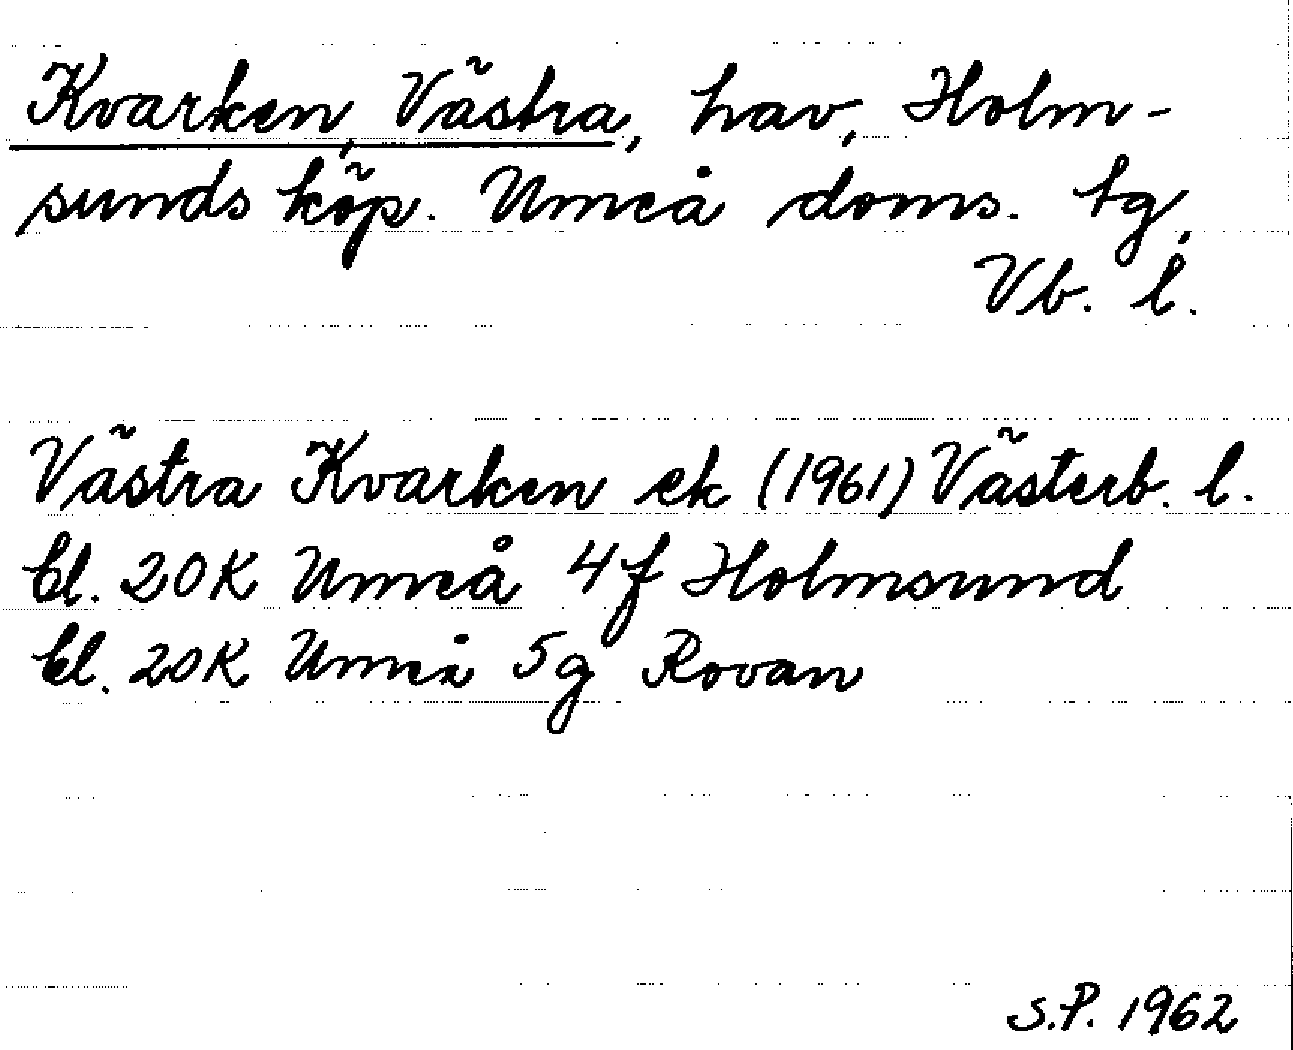 Kvarken, Västra, hav, Holm-
sunds köp. Umeå doms. tg,
Vb. l.
Västra Kvarken ek (1961) Västerb. l.
bl. 20K Umeå 4f Holmsund
bl. 20K Umeå 5g Rovan
S.P. 1962